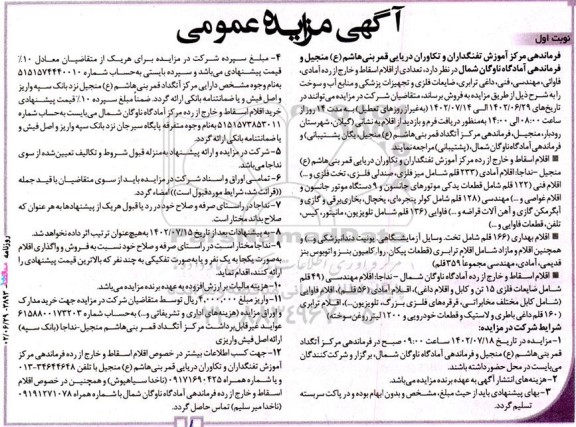 آگهی مزایده عمومی
نوبت اول
فرماندهی مرکز آموزش تفنگداران و تکاوران دریایی قمر بنی هاشم (ع) منجیل و
فرماندهی آمادگاه ناوگان شمال در نظر دارد، تعدادی از اقلام اسقاط و خارج از رده آمادی،
فاوائی، مهندسی، فنی، داغی ترابری، ضایعات فلزی و تجهیزات پزشکی و منابع آب و سوخت
را به شرح ذیل از طریق مزایده به فروش برساند، متقاضیان شرکت در مزایده می توانند در
تاریخ‌های ۱۴۰۲/۰۶/۲۹ الی ۱۴۰۲/۰۷/۱۴ (به غیر از روزهای تعطیل) به مدت ۱۴ روز از
ساعت ۰۸:۰۰ الی ۱۲:۰۰ به منظور دریافت فرم و بازدید از اقلام به نشانی (گیلان، شهرستان
رودبار، منجیل، فرماندهی مرکز آتگتداد قمر بنی هاشم (ع) منجیل، یگان پشتیبانی و
فرماندهی آمادگاه ناوگان شمال، (پشتیبانی) مراجعه نمایند
اقلام اسقاط و خارج از رده مرکز آموزش تفنگداران و تکاوران دریایی قمر بنی هاشم (ع)
منجیل - نداجا: اقلام آمادی (۲۳۳ قلم شامل میز فلزی، صندلی فلزی، تخت فلزی و ...)
اقلام فنی (۱۲۲ قلم شامل قطعات یدکی موتورهای جانسون و ۹ دستگاه موتور جانسون و
اقلام غواصی و ...) مهندسی (۱۲۸ قلم شامل کولر پنجره‌ای، یخچال، بخاری برقی و گازی و
آبگرمکن گازی و آهن آلات قراضه و ...) فاوایی (۱۳۶ قلم شامل تلویزیون، مانیتور، کیس،
تلفن، قطعات فاوایی و ...)
اقلام بهداری (۱۶۶ قلم شامل تخت، وسایل آزمایشگاهی، یونیت دندانپزشکی و ...) و
همچنین اقلام و مازاد شامل اقلام ترابری (قطعات پیکان، روآ، کامیون بنز و اتوبوس بنز
قدیمی)، آمادی، مهندسی مجموعا ۳۵۹ قلم)
اقلام اسقاط و خارج از رده آمادگاه ناوگان شمال - نداجا: اقلام مهندسی (۴۹۱ قلم
شامل ضایعات فلزی ۱۵ تن و کابل و اقلام داغی)، اقلام آمادی (۵۶ قلم)، اقلام فاوایی
(شامل کابل مختلف مخابراتی، قرقره‌های فلزی بزرگ، تلویزیون ...)، اقلام ترابری
(۱۶۰ قلم داغی باطری و لاستیک و قطعات خودرویی و ۱۲۰۰ لیتر روغن سوخته)
شرایط شرکت در مزایده:
۱- مزایده در تاریخ ۱۴۰۲/۰۷/۱۸ ساعت ۰۹:۰۰ صبح در فرماندهی مرکز آتگتداد
قمر بنی هاشم (ع) منجیل و فرماندهی آمادگاه ناوگان شمال، برگزار و شرکت کنندگان
می بایست در محل حضور داشته باشند.
۲- هزینه‌های انتشار آگهی به عهده برنده مزایده می باشد.
۳- بهای پیشنهادی باید از حیث مبلغ، مشخص و بدون ابهام بوده و در پاکت سربسته
تسلیم گردد.
۴- مبلغ سپرده شرکت در مزایده برای هریک از متقاضیان معادل ۱۰٪
قیمت پیشنهادی می باشد و سپرده بایستی به حساب شماره ۵۱۵۱۵۷۴۴۴۰۰۱۰
به نام وجوه مشخص دارایی مرکز آتگتداد قمر بنی هاشم (ع) منجیل نزد بانک سپه واریز
و اصل فیش و یا ضمانتنامه بانکی ارائه گردد. ضمناً مبلغ سپرده ۱۰٪ قیمت پیشنهادی
خرید اقلام اسقاط و خارج از رده مرکز آمادگاه ناوگان شمال می بایست به حساب شماره
به نام وجوه متفرقه پایگاه سیرجان نزد بانک سپه واریز و اصل فیش و
یا ضمانتنامه بانکی ارائه گردد.
۵- شرکت در مزایده و ارائه پیشنهاد به منزله قبول شروط و تکالیف تعیین شده از سوی
نداجا می باشد.
۶- تمامی اوراق و اسناد شرکت در مزایده باید از سوی متقاضیان با قید جمله
((قرائت شد، شرایط مورد قبول است)) امضاء گردد.
۷- نداجا در راستای صرفه و صلاح خود در رد یا قبول هریک از پیشنهادها به هر عنوان که
صلاح بداند مختار است.
۸- به پیشنهادات بعد از تاریخ ۱۴۰۲/۰۷/۱۵ به هیچ عنوان ترتیب اثر داده نخواهد شد.
۹- نداجا مختار است در راستای صرفه و صلاح خود نسبت به فروش و واگذاری اقلام
به صورت یکجا به یک نفر و یا به صورت تفکیکی به چند نفر که بالاترین قیمت پیشنهادی را
ارائه کنند، اقدام نماید
۱۰- هزینه مالیات بر ارزش افزوده به عهده برنده مزایده می باشد.
۱۱- واریز مبلغ ۴,۰۰۰,۰۰۰ ریال توسط متقاضیان شرکت در مزایده جهت خرید مدارک
و اوراق مزایده (هزینه‌های اداری و تشریفاتی و ...) به حساب شماره ۶۱۵۸۸۰۰۱۷۳۲۰۳
عواید غیرقابل برداشت مرکز آتگتداد قمر بنی هاشم منجیل-نداجا (بانک سپه)
ارائه اصل فیش واریزی
۱۲- جهت کسب اطلاعات بیشتر در خصوص اقلام اسقاط و خارج از رده فرماندهی مرکز
آموزش تفنگداران و تکاوران دریایی قمر بنی هاشم (ع) منجیل با تلفن ۳۴۶۴۴۶۴۸-۰۱۳
و یا شماره همراه ۰۹۱۷۱۶۹۰۴۲۵ (ناخدا سیاهپوش) و همچنین در خصوص اقلام
اسقاط و خارج از رده فرماندهی آمادگاه ناوگان شمال با شماره همراه ۰۹۱۹۱۲۷۱۰۷۸
(ناخدا میر سلیم) تماس حاصل گردد.